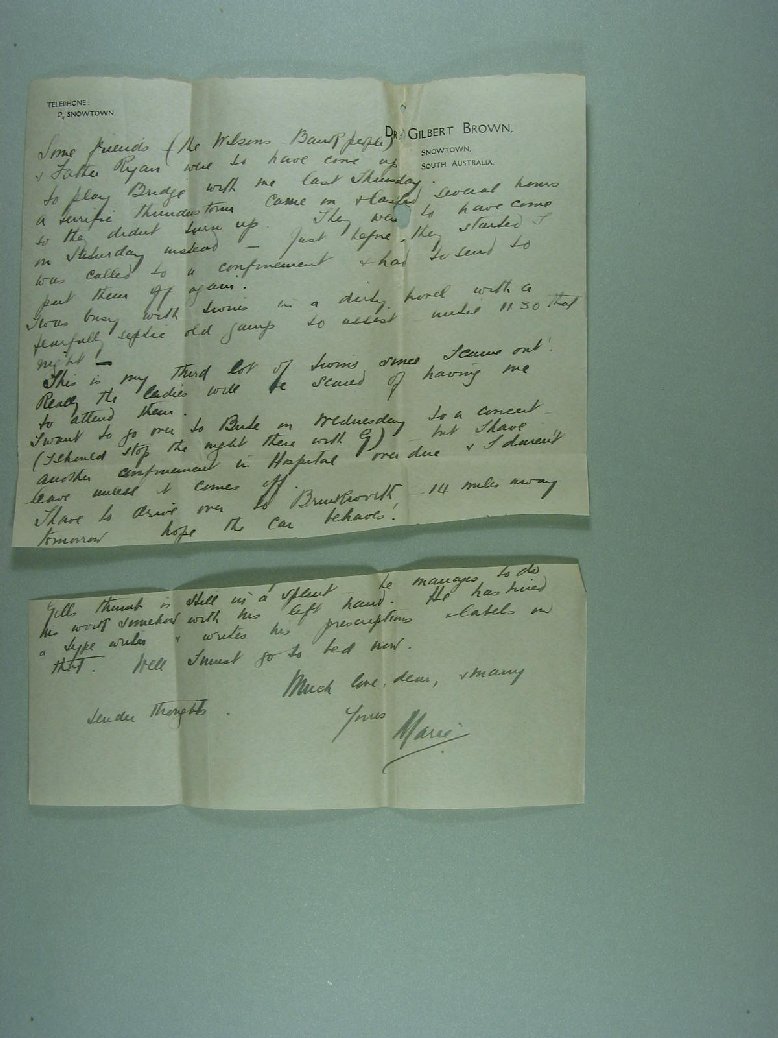 TELEPHONE:
2, SNOWTOWN
DR. GILBERT BROWN.
SNOWTOWN,
SOUTH AUSTRALIA.
Some friends (the Wilsons Bank people)
& Father Ryan were to have come up
to play Bridge with me last Thursday.
a terrific thunderstorm came on & lasted several hours
so the didnt turn up. They were to have come
on Saturday instead - just before they started I
was called to a confinement & had to send to
put them off again.
I was busy with twins in a dirty hovel with a
fearfully septic old gamp to assist until 11 30 that
night! -
This is my third lot of twins since I came out!
Really the ladies will be scared of having me
to attend them.
I want to go over to Bute on Wednesday to a concert -
(I should stop the night there with G) - but I have
another confinement in Hospital over due & I daren't
leave unless it comes off.
I have to drive over to Brinkworth - 14 miles away
tomorrow hope the car behaves!
Gills thumb is still in a splint he manages to do
his work somehow with his left hand. He has hired
a type writer & writes his prescriptions & labels on
that. Well I must go to bed now.
Much love, dear, & many
tender thoughts.
Yours
Marie